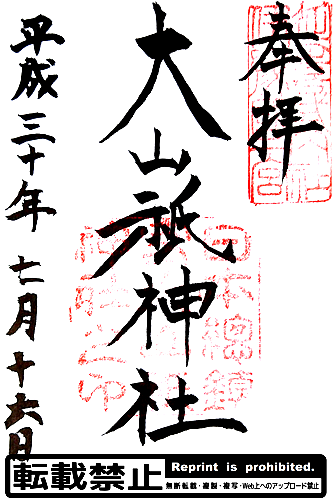 奉拝
大山祇神社
平成三十年七月十六日
転載禁止
Reprint is prohibited.
無断転載・複製・複写・Web上へのアップロード禁止